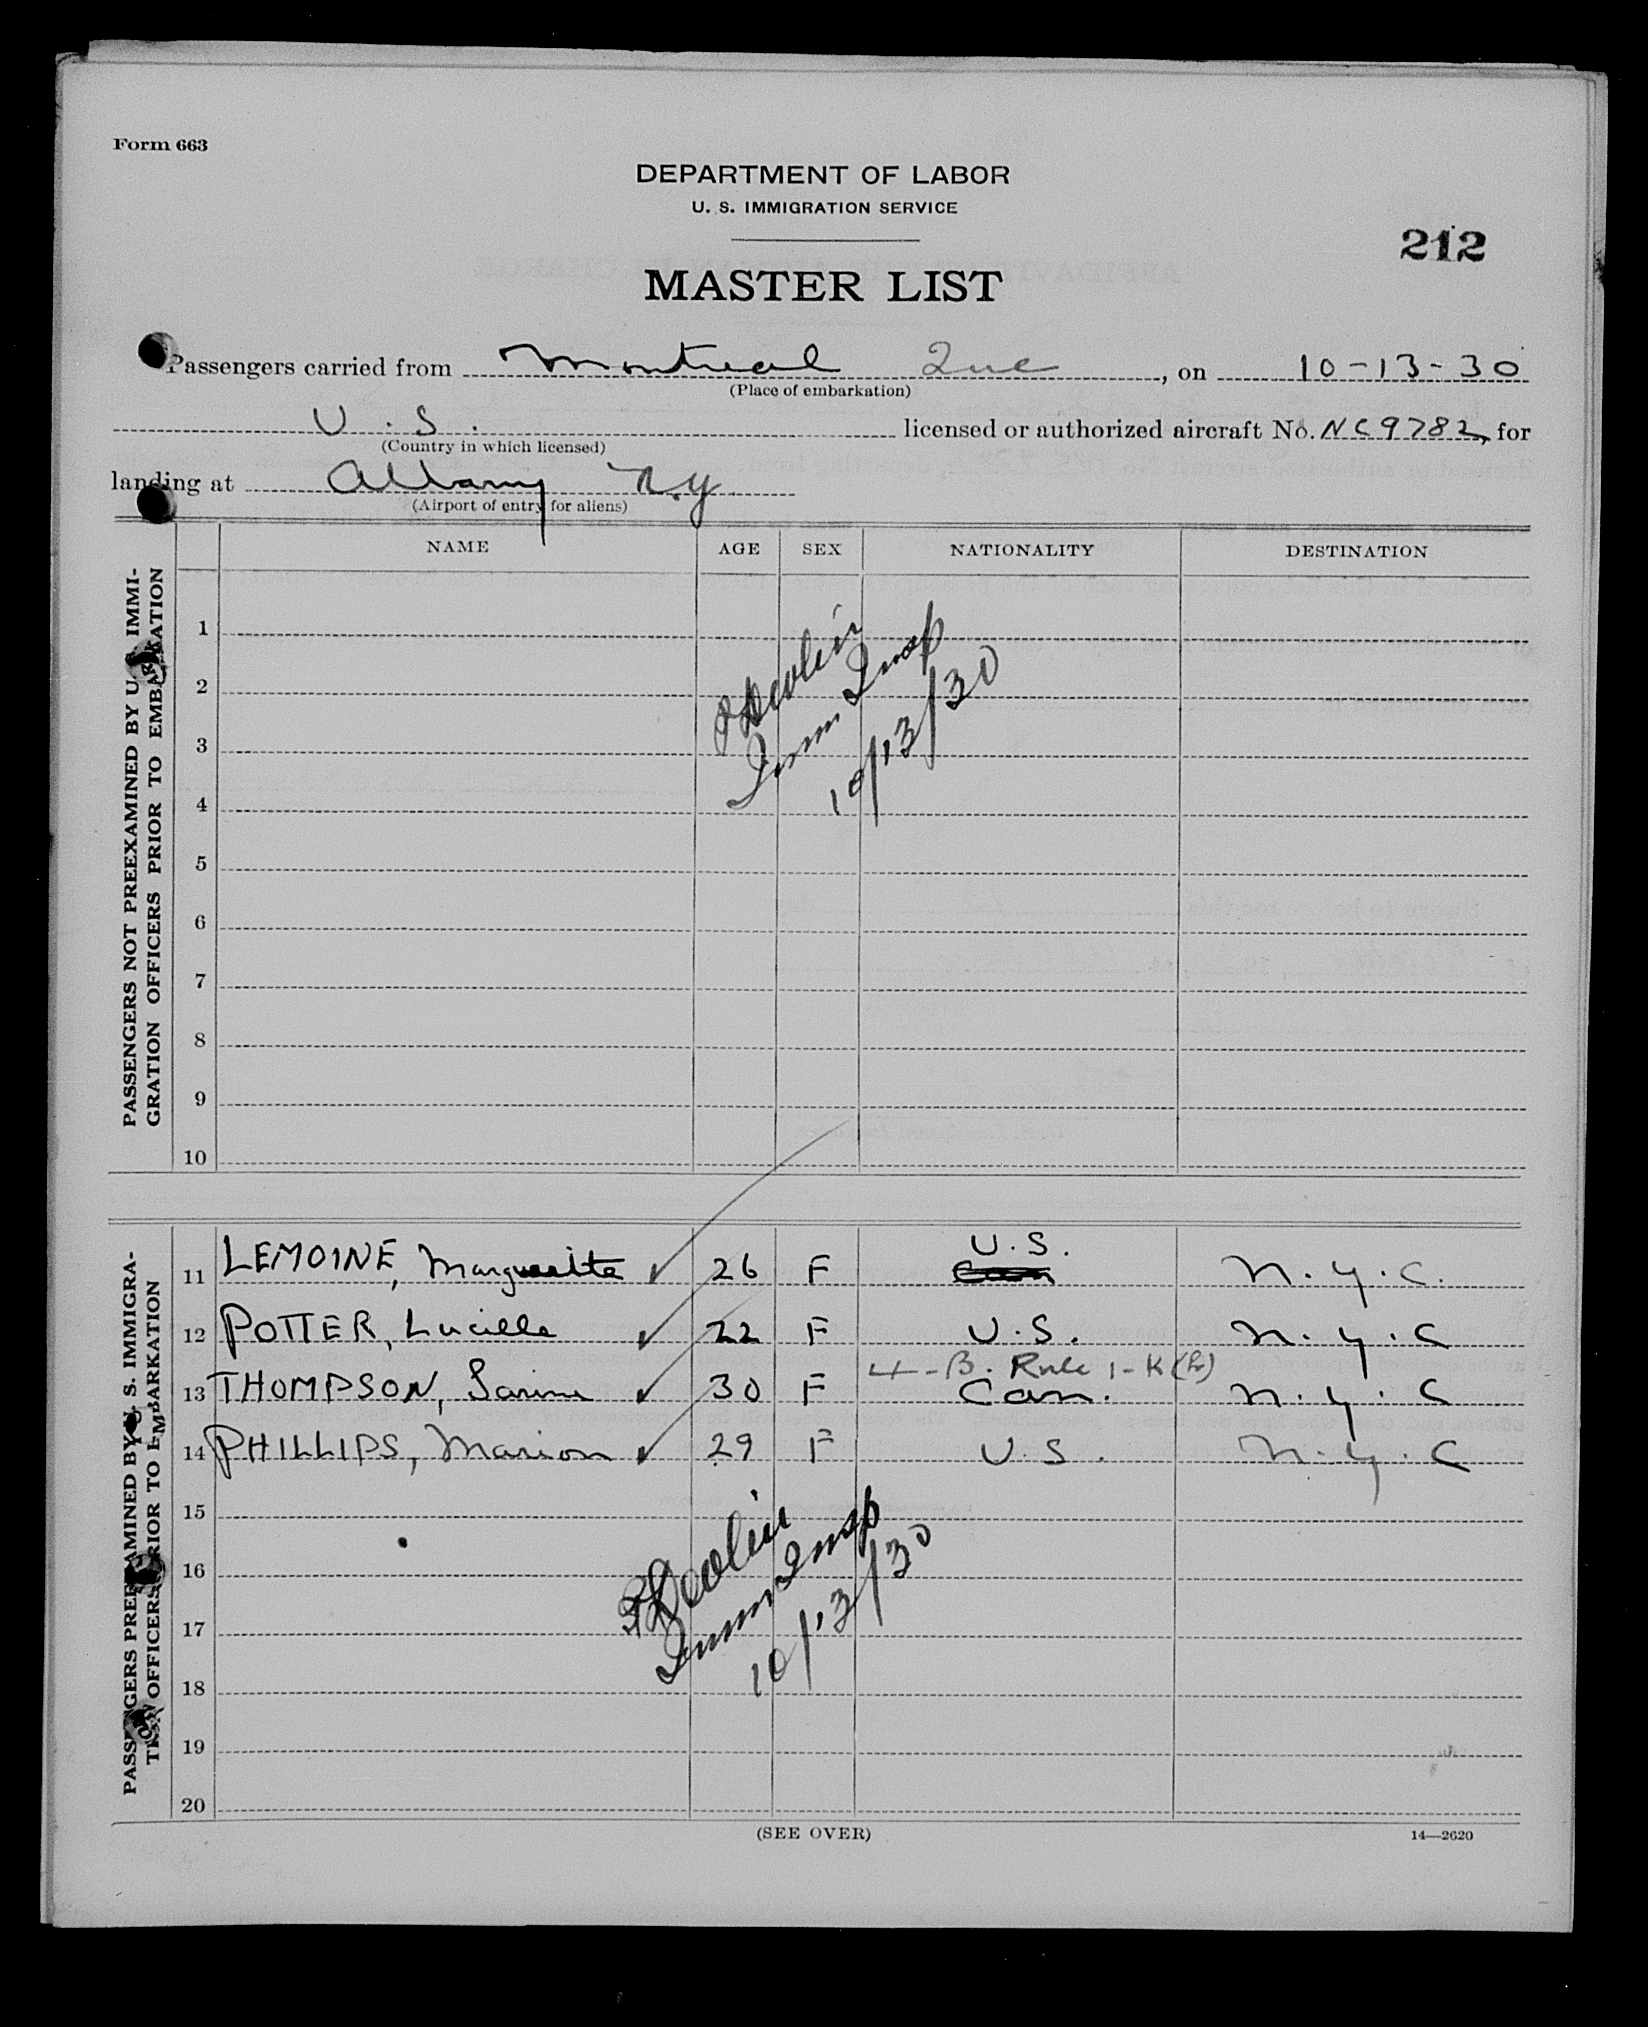 Form 663
DEPARTMENT OF LABOR
U. S. IMMIGRATION SERVICE
212
MASTER LIST
Passengers carried from Montreal Que, on 10-13-30
(Place of embarkation)
U.S. licensed or authorized aircraft No. NC9782, for
(Country in which licensed)
landing at Albany N.Y.
(Airport of entry for aliens)
NAME AGE SEX NATIONALITY DESTINATION
PASSENGERS NOT PREEXAMINED BY U. S. IMMI-
GRATION OFFICERS PRIOR TO EMBARKATION
1
2
3
4
5
6
7
8
9
10
Devlin
Imm Insp
10/13/30
PASSENGERS PREEXAMINED BY U. S. IMMIGRA-
TION OFFICERS PRIOR TO EMBARKATION
U.S.
11 LEMOINE, Marguerite ✓ 26 F Can N.Y.C.
12 POTTER, Lucille ✓ 22 F U.S. N.Y.C
4-B. Rule 1-K(b)
13 THOMPSON, ✓ 30 F Can. N.Y.C
14 PHILLIPS, Marion ✓ 29 F U.S. N.Y.C
15
16
17
18
19
20
Devlin
Imm Insp
10/13/30
(SEE OVER)
14—2620